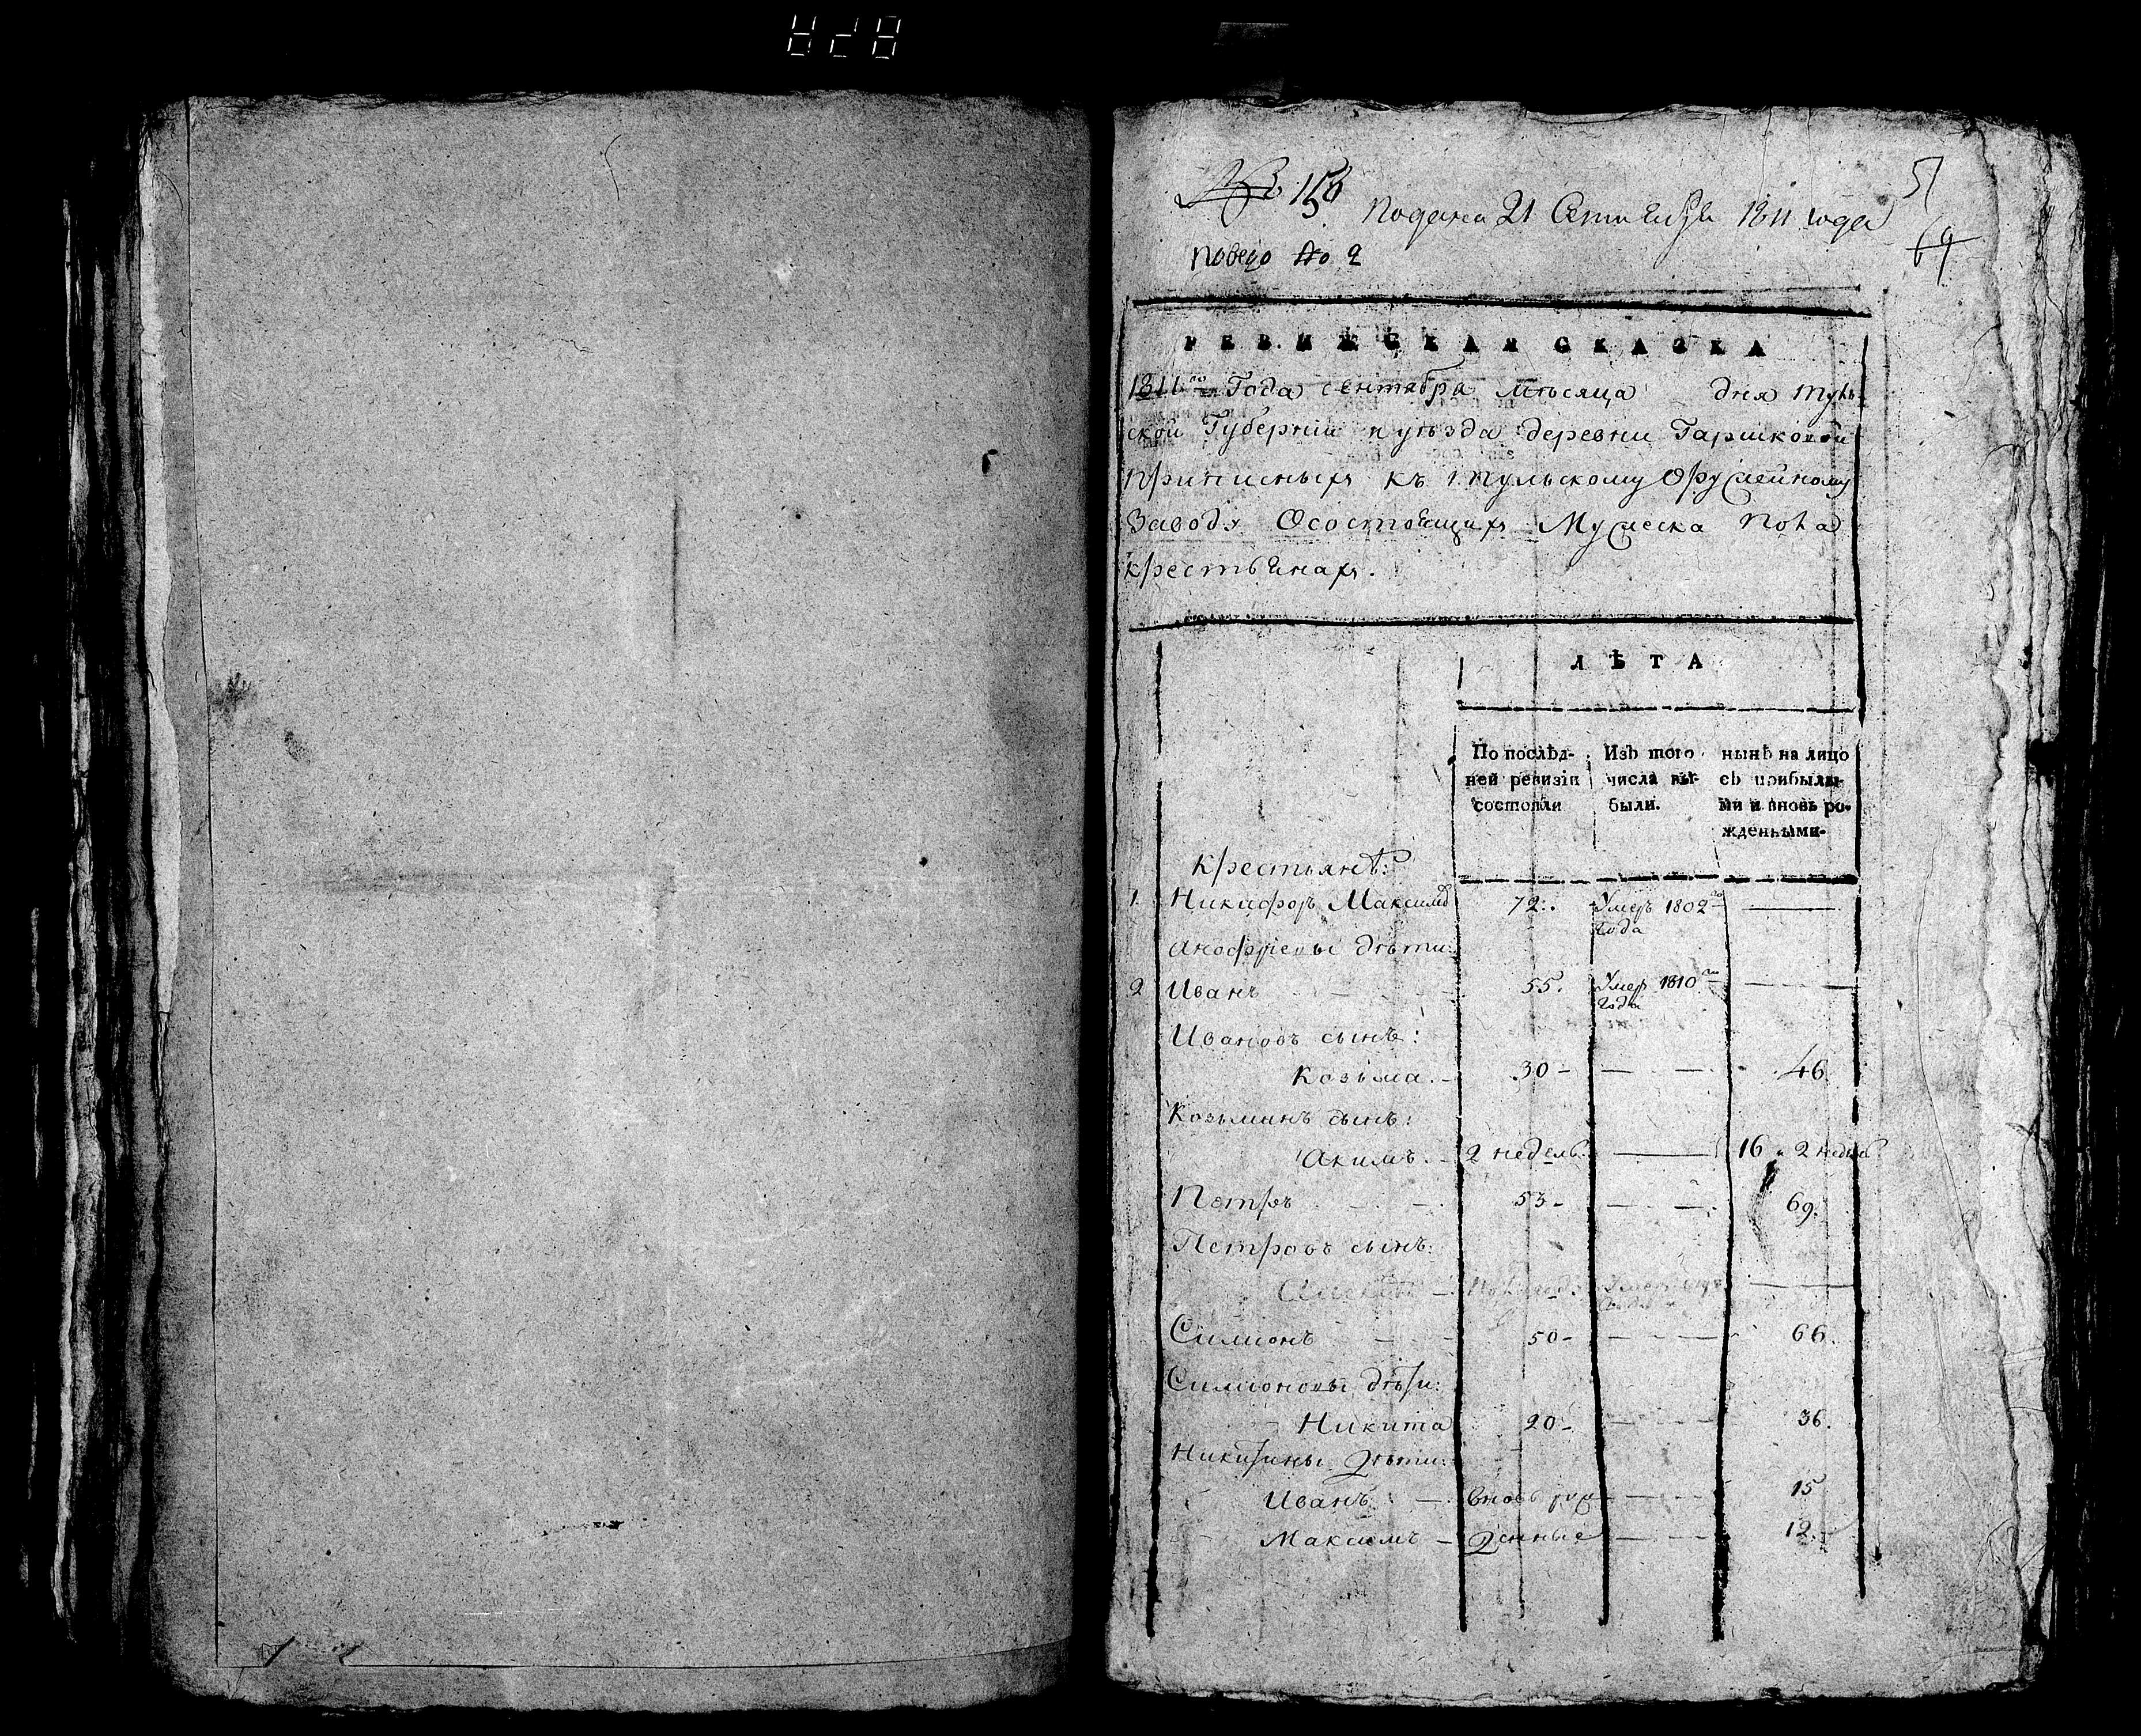 828
№ 158 подана 21 Сентября 1811 года 51
69
по вего № 2
РЕВИЖСКАЯ СКАЗКА
1811го Года сентября мѣсяца дня Туль-
ской Губерніи и уѣзда деревни Гаршковой
приписныхъ къ Тульскому Оружейному
Заводу О состоящихъ Мужеска пола
крестьянахъ.
ЛѢТА
По послѣд-
ней ревизіи
состояли
Изъ того
числа вы-
были.
нынѣ на лицо
съ прибылы-
ми и вновь ро-
жденными.
Крестьянѣ:
1. Никифоръ Максимовъ 72. Умеръ 1802го года —
Анофріевы дѣти:
2 Иванъ 55. Умеръ 1810го года —
Ивановъ сынъ:
Козьма 30 — 46
Козьминъ сынъ:
Акимъ 2 недель — 16 и 2 недель
Петръ 53 — 69.
Петровъ сынъ:
Симионъ 50 — 66.
Симионовы дѣти:
Никита 20 — 36.
Никитины дѣти:
Иванъ вновь рож — 15
Максимъ — денные — 12.